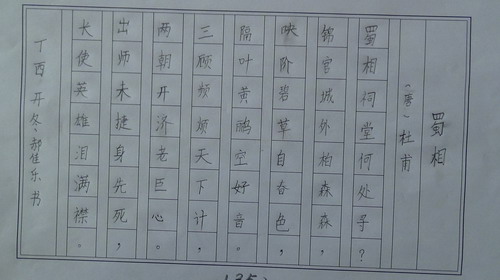 蜀相
(唐)杜甫
蜀相祠堂何处寻?
锦官城外柏森森,
映阶碧草自春色,
隔叶黄鹂空好音。
三顾频烦天下计,
两朝开济老臣心。
出师未捷身先死,
长使英雄泪满襟。
丁酉开冬,郝佳乐书